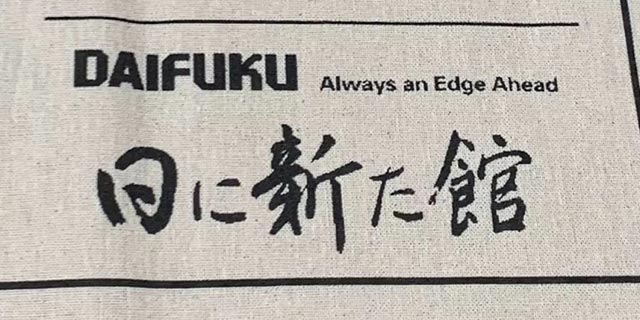 DAIFUKU Always an Edge Ahead
日に新た館